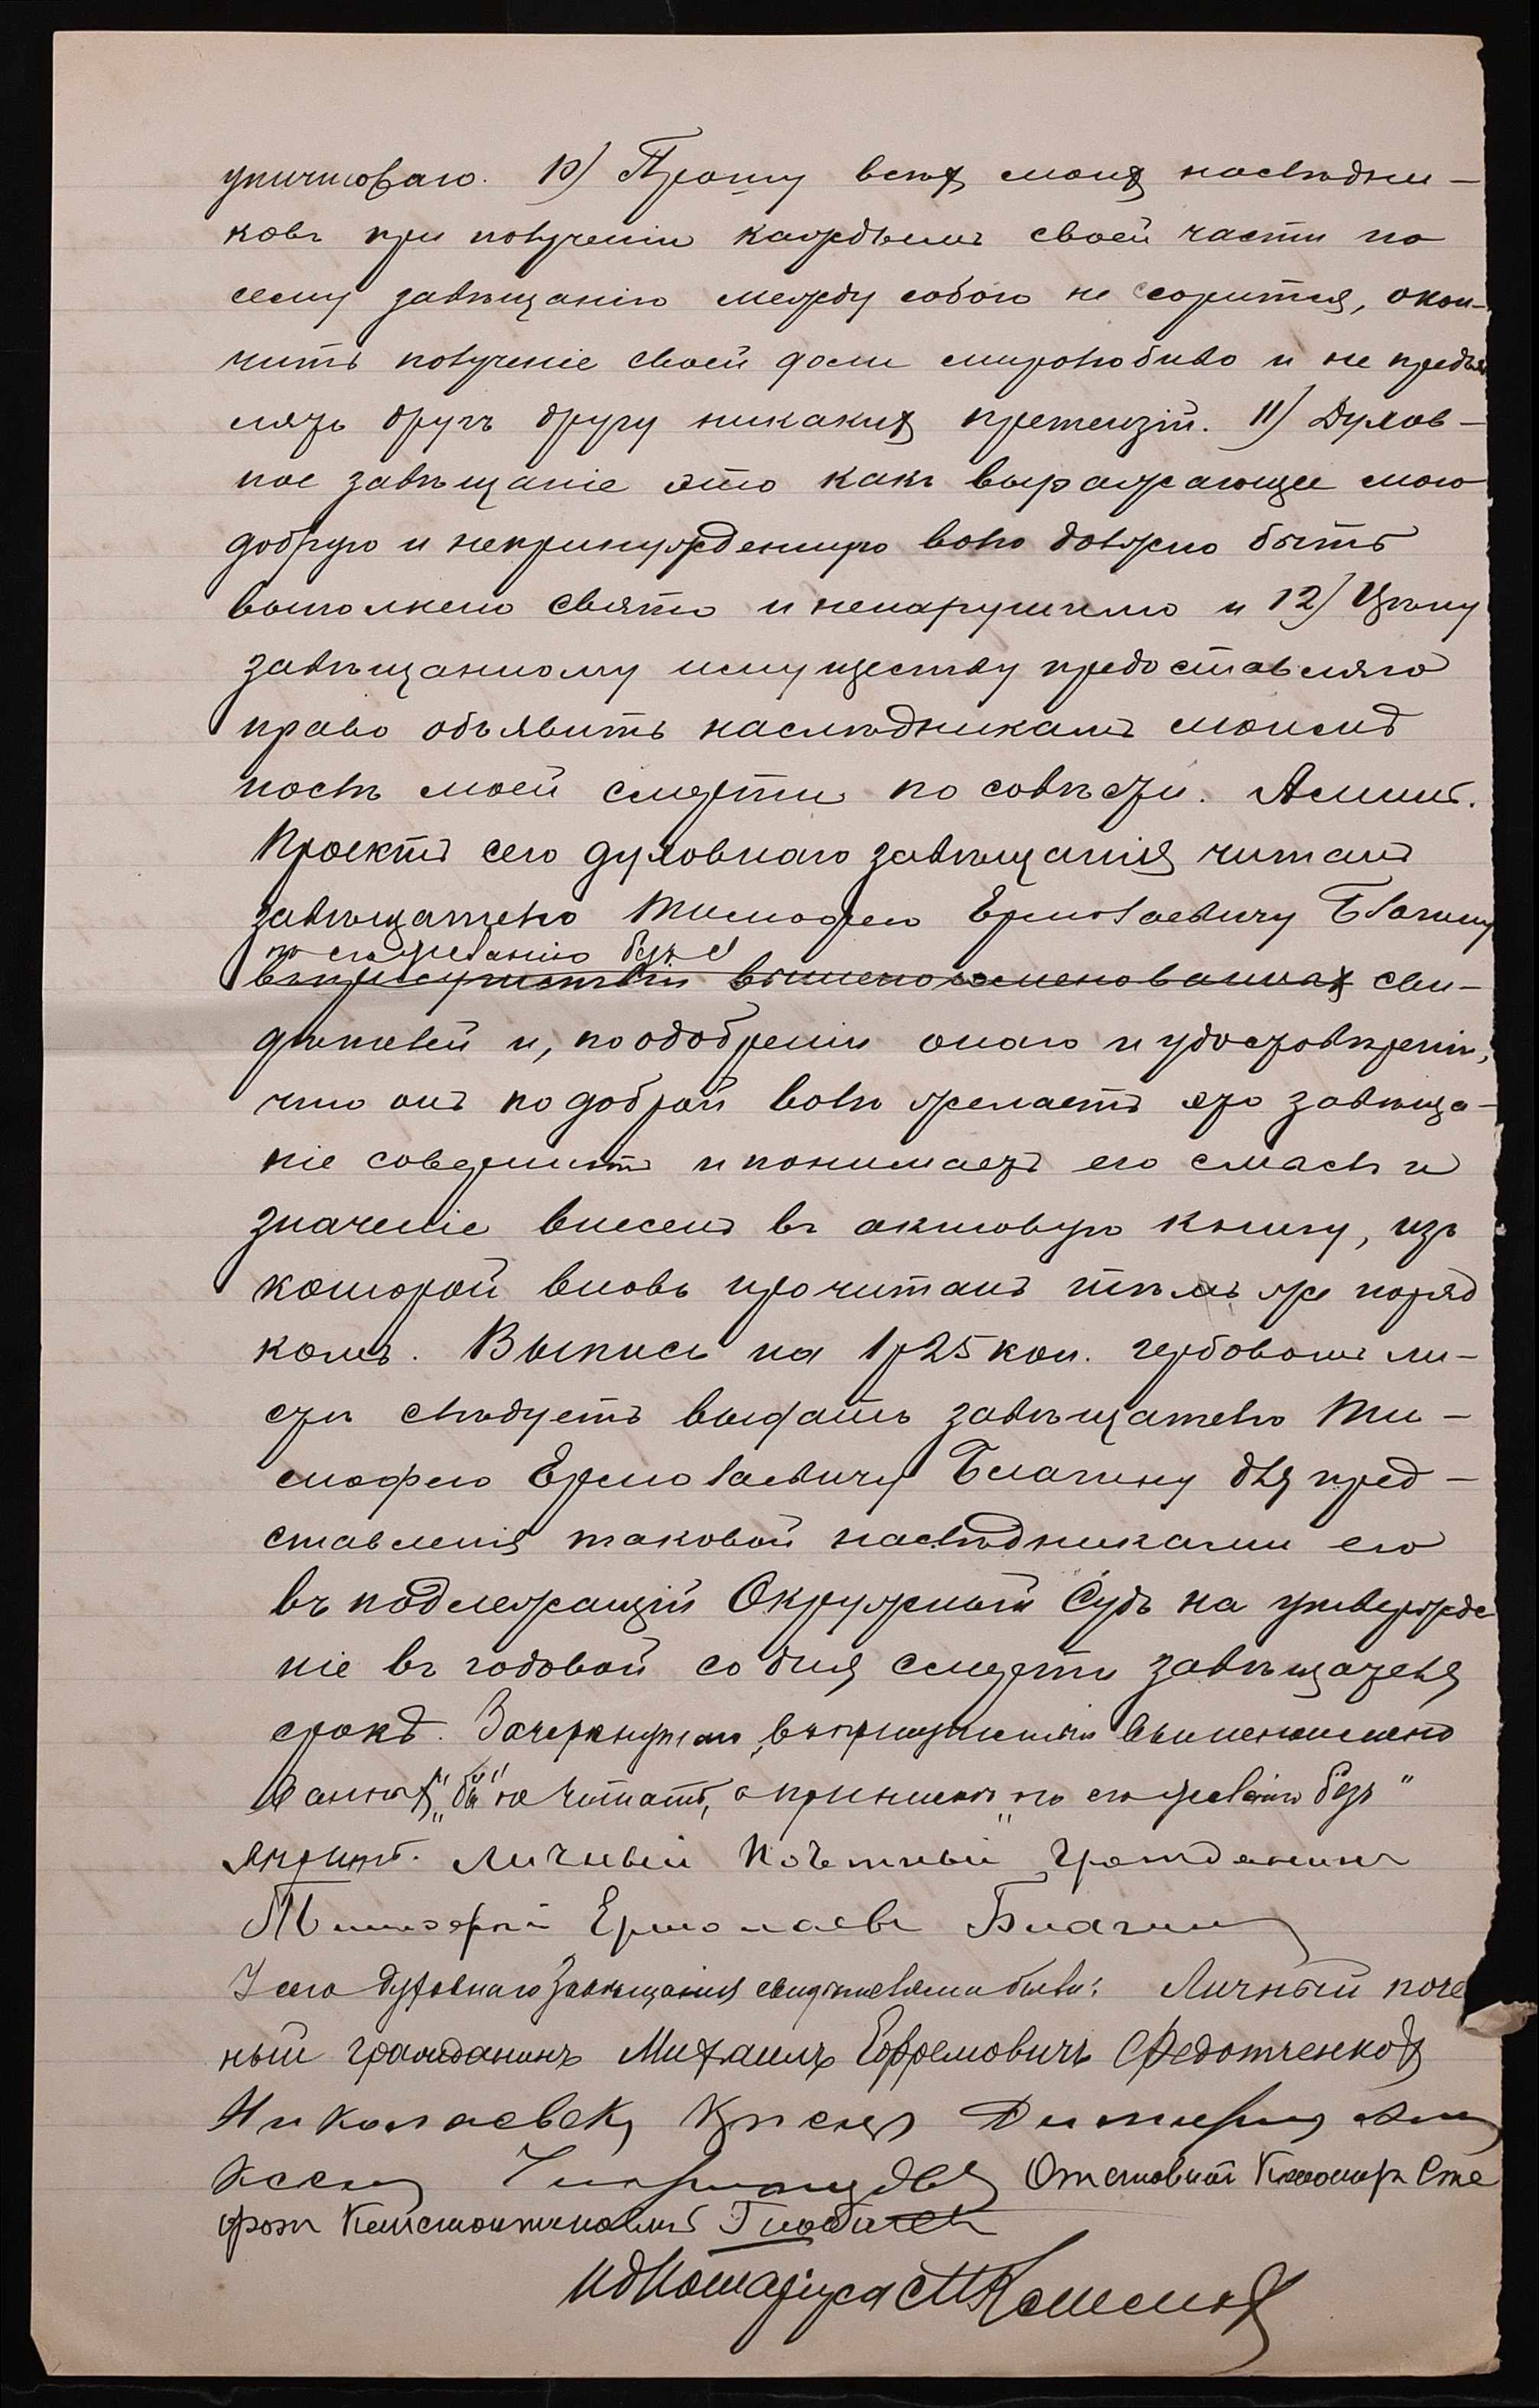 уничтожаю. 10) Прошу всѣхъ моихъ наслѣдни-
ковъ при полученіи каждымъ своей части по
сему завѣщанію между собою не ссорится, окон-
чить полученіе своей доли миролюбиво и не предъяв
лять другъ другу никакихъ претензій. 11) Духов-
ное завѣщаніе это какъ выражающее мою
добрую и непринужденную волю должно быть
выполнено свято и ненарушимо и 12) Цѣну
завѣщанному имуществу предоставляю
право объявить наслѣдникамъ моимъ
послѣ моей смерти по совѣсти. Аминь.
Проектъ сего духовнаго завѣщанія читанъ
завѣщателю Тимофею Ермолаевичу Благину
по его желанію безъ
въ присутствіи вышепоименованныхъ сви-
дѣтелей и, по одобреніи онаго и удостовѣреніи,
что онъ по добрай волѣ желаетъ это завѣща-
ніе совершить и понимаетъ его смыслъ и
значеніе внесенъ въ актовую книгу, изъ
которой вновь прочитанъ тѣмъ же поряд
комъ. Выпись на 1р 25 коп. гербовомъ ли-
стѣ слѣдуетъ выдать завѣщателю Ти-
мофею Ермолаевичу Благину для пред-
ставленія таковой наслѣдниками его
въ подлежащій Окружный Судъ на утвержде
ніе въ годовой со дня смерти завѣщателя
срокъ. Зачеркнутое „въ присутствіи вышепоимено
ванныхъ" не читать, а приписанное „по его желанію безъ"
вѣрить. Личный Почетный Гражданинъ
Тимофей Ермолаевъ Благинъ
У сего духовнаго завѣщанія свидѣтелями были: Личный поче
ный гражданинъ Михаилъ Ефремовичъ Федотченковъ
Николаевскъ Купецъ Димитрій
Отставной Кантонистъ Сте
фанъ Константиновичъ
ИдНотаріуса